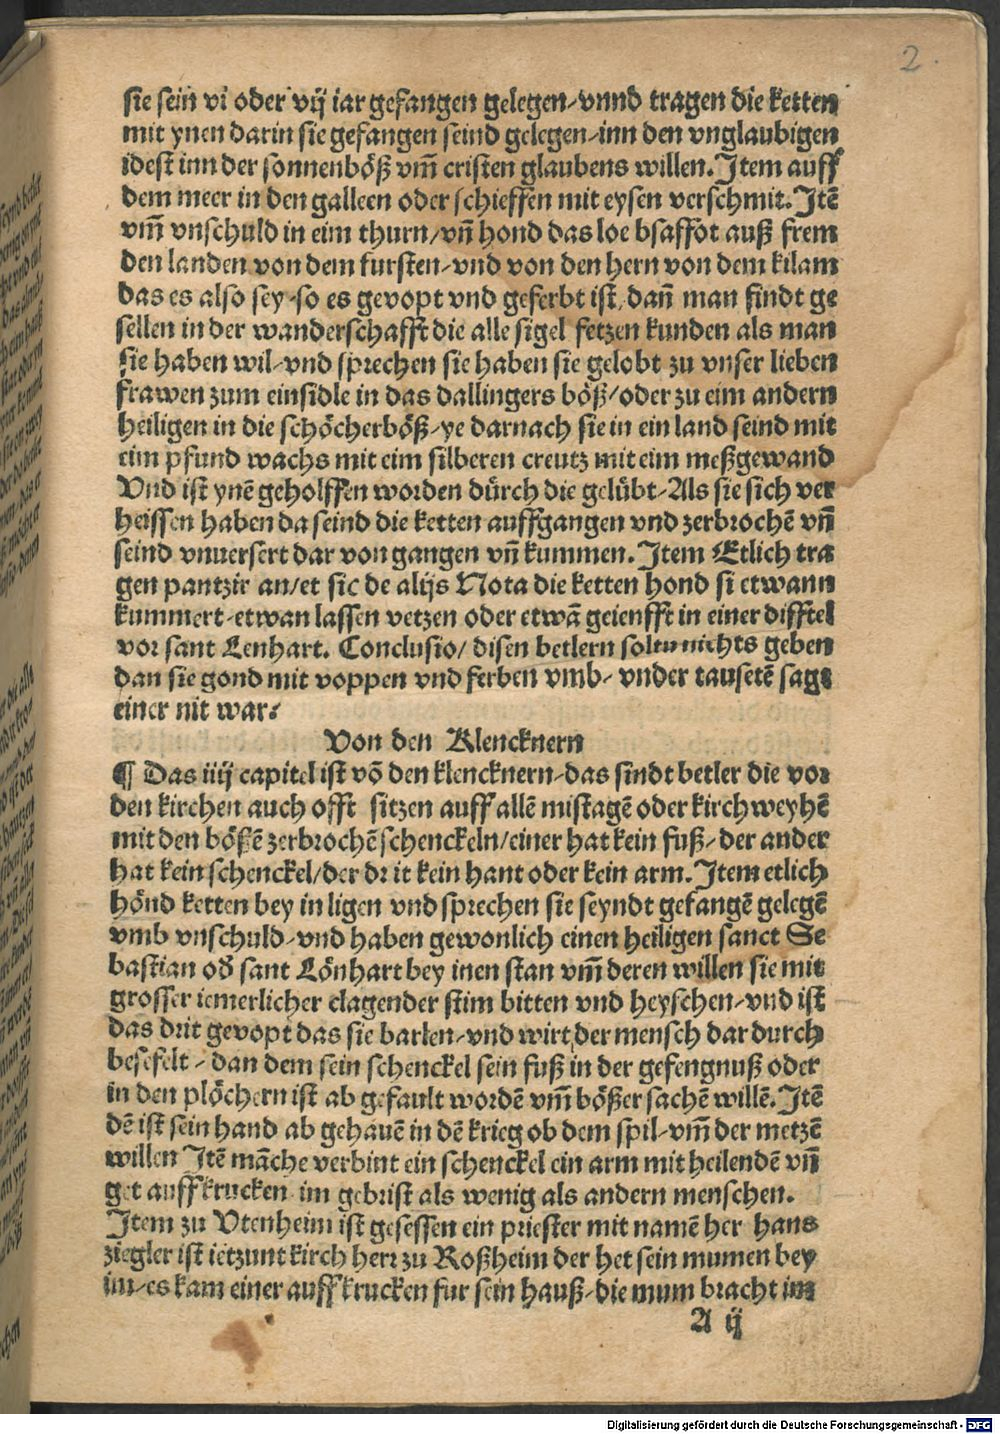 2.
sie sein vi oder vij iar gefangen gelegen/vnnd tragen die ketten
mit ynen darin sie gefangen seind gelegen/inn den vnglaubigen
idest inn der sonnenböß vm̄ cristen glaubens willen. Item auff
dem meer in den galleen oder schieffen mit eysen verschmit. Itē
vm̄ vnschuld in eim thurn/vn̄ hond das loe bsaffot auß frem
den landen von dem fursten/vnd von den hern von dem kilam
das es also sey/so es gevopt vnd geferbt ist, dan̄ man findt ge
sellen in der wanderschafft die alle sigel fetzen kunden als man
sie haben wil/vnd sprechen sie haben sie gelobt zu vnser lieben
frawen zum einsidle in das dallingers böß/oder zu eim andern
heiligen in die schöcherböß/ye darnach sie in ein land seind mit
eim pfund wachs mit eim silberen creutz mit eim meßgewand
Vnd ist ynē geholffen worden dürch die gelübt/Als sie sich ver
heissen haben da seind die ketten auffgangen vnd zerbrochē vn̄
seind vnuersert dar von gangen vn̄ kummen. Item Etlich tra
gen pantzir an/et sic de alijs Nota die ketten hond si etwann
kummert/etwan lassen vetzen oder etwā geienfft in einer difftel
vor sant Lenhart. Conclusio/ disen betlern soltu nichts geben
dan sie gond mit voppen vnd ferben vmb/ vnder tausetē sagt
einer nit war.
Von den Klencknern
¶ Das iiij capitel ist vō den klencknern/das sindt betler die vor
den kirchen auch offt sitzen auff allē mistagē oder kirchweyhē
mit den bößē zerbrochē schenckeln/einer hat kein fuß/der ander
hat kein schenckel/der drit kein hant oder kein arm. Item etlich
hönd ketten bey in ligen vnd sprechen sie seyndt gefangē gelegē
vmb vnschuld/vnd haben gewonlich einen heiligen sanct Se
bastian od̄ sant Lönhart bey inen stan vm̄ deren willen sie mit
grosser iemerlicher clagender stim bitten vnd heyschen/vnd ist
das drit gevopt das sie barlen/vnd wirt der mensch dar durch
besefelt/ dan dem sein schenckel sein fuß in der gefengnuß oder
in den plöchern ist ab gefault wordē vm̄ bößer sachē willē. Itē
dē ist sein hand ab gehauē in dē krieg ob dem spil/vm̄ der metzē
willen Itē māche verbint ein schenckel ein arm mit heilendē vn̄
get auff krucken im gebrist als wenig als andern menschen.
Item zu Vtenheim ist gesessen ein priester mit namē her hans
ziegler ist ietzunt kirch herr zu Roßheim der het sein mumen bey
im/es kam einer auff krucken fur sein hauß/die mum bracht im
A ij
Digitalisierung gefördert durch die Deutsche Forschungsgemeinschaft - DFG